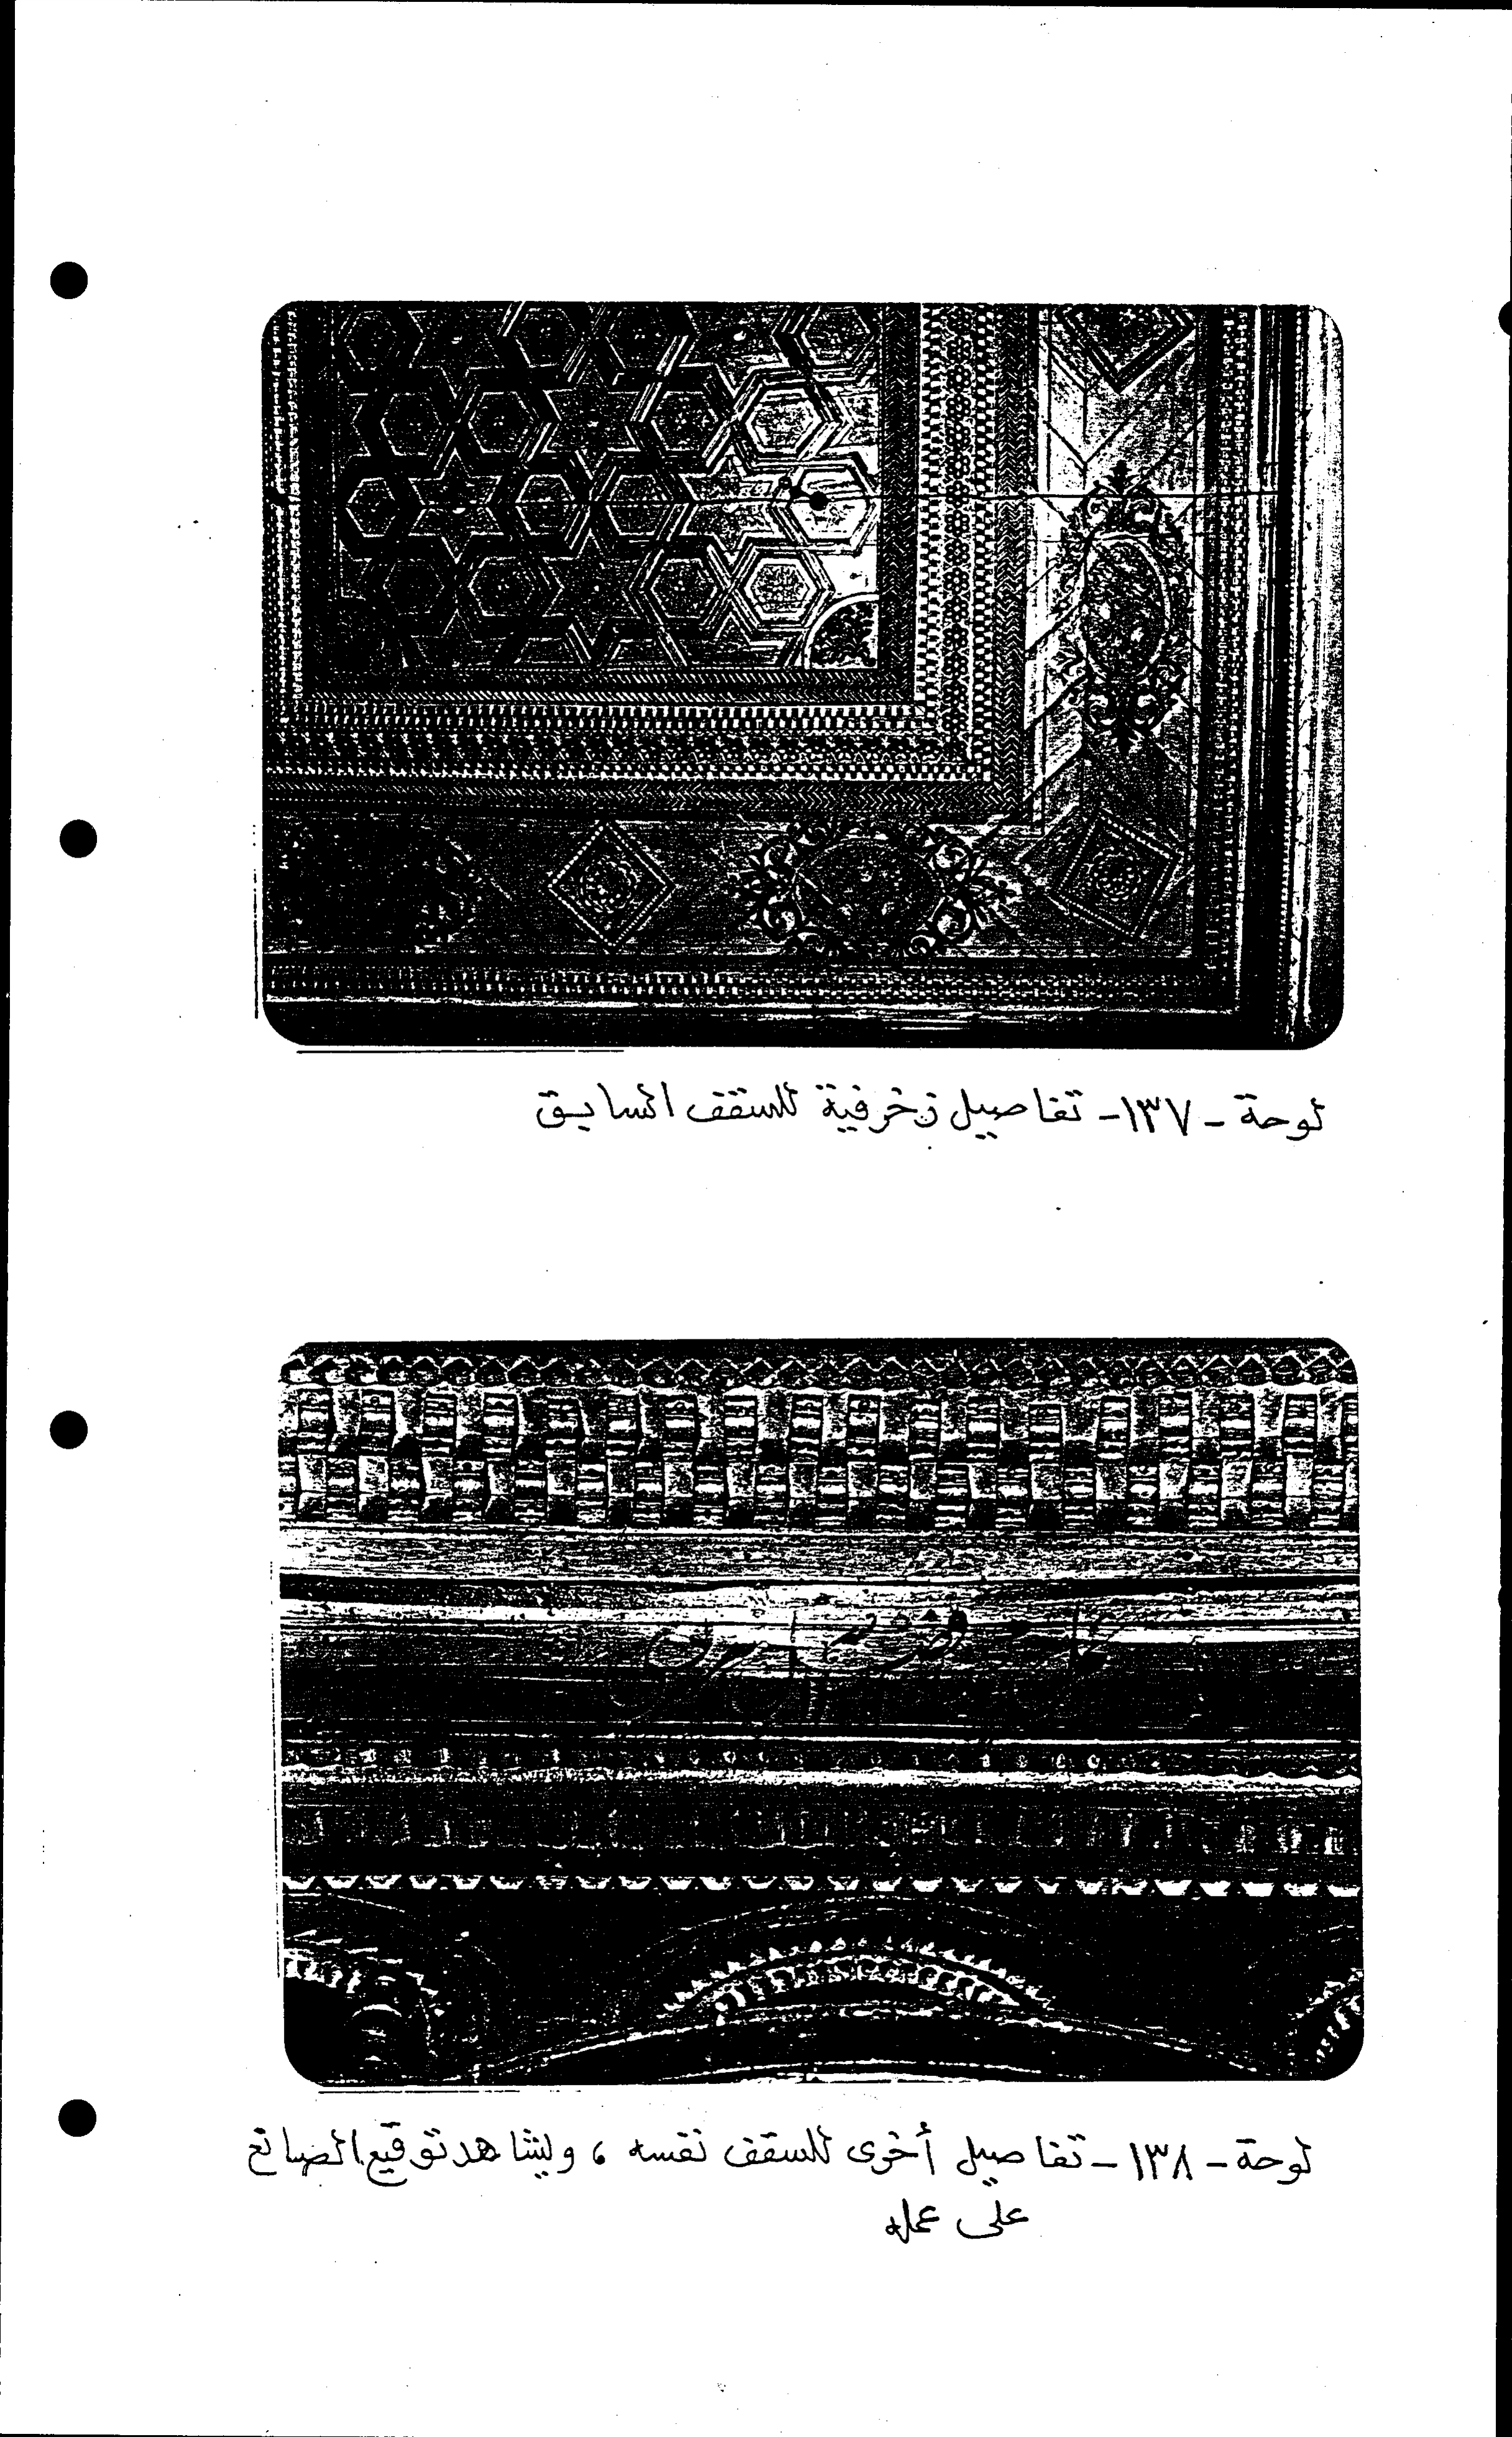 لوحة - ١٣٧ - تفاصيل زخرفية للسقف السابق
لوحة - ١٣٨ - تفاصيل أخرى للسقف نفسه ، ويشاهد توقيع الصانع
على عمله